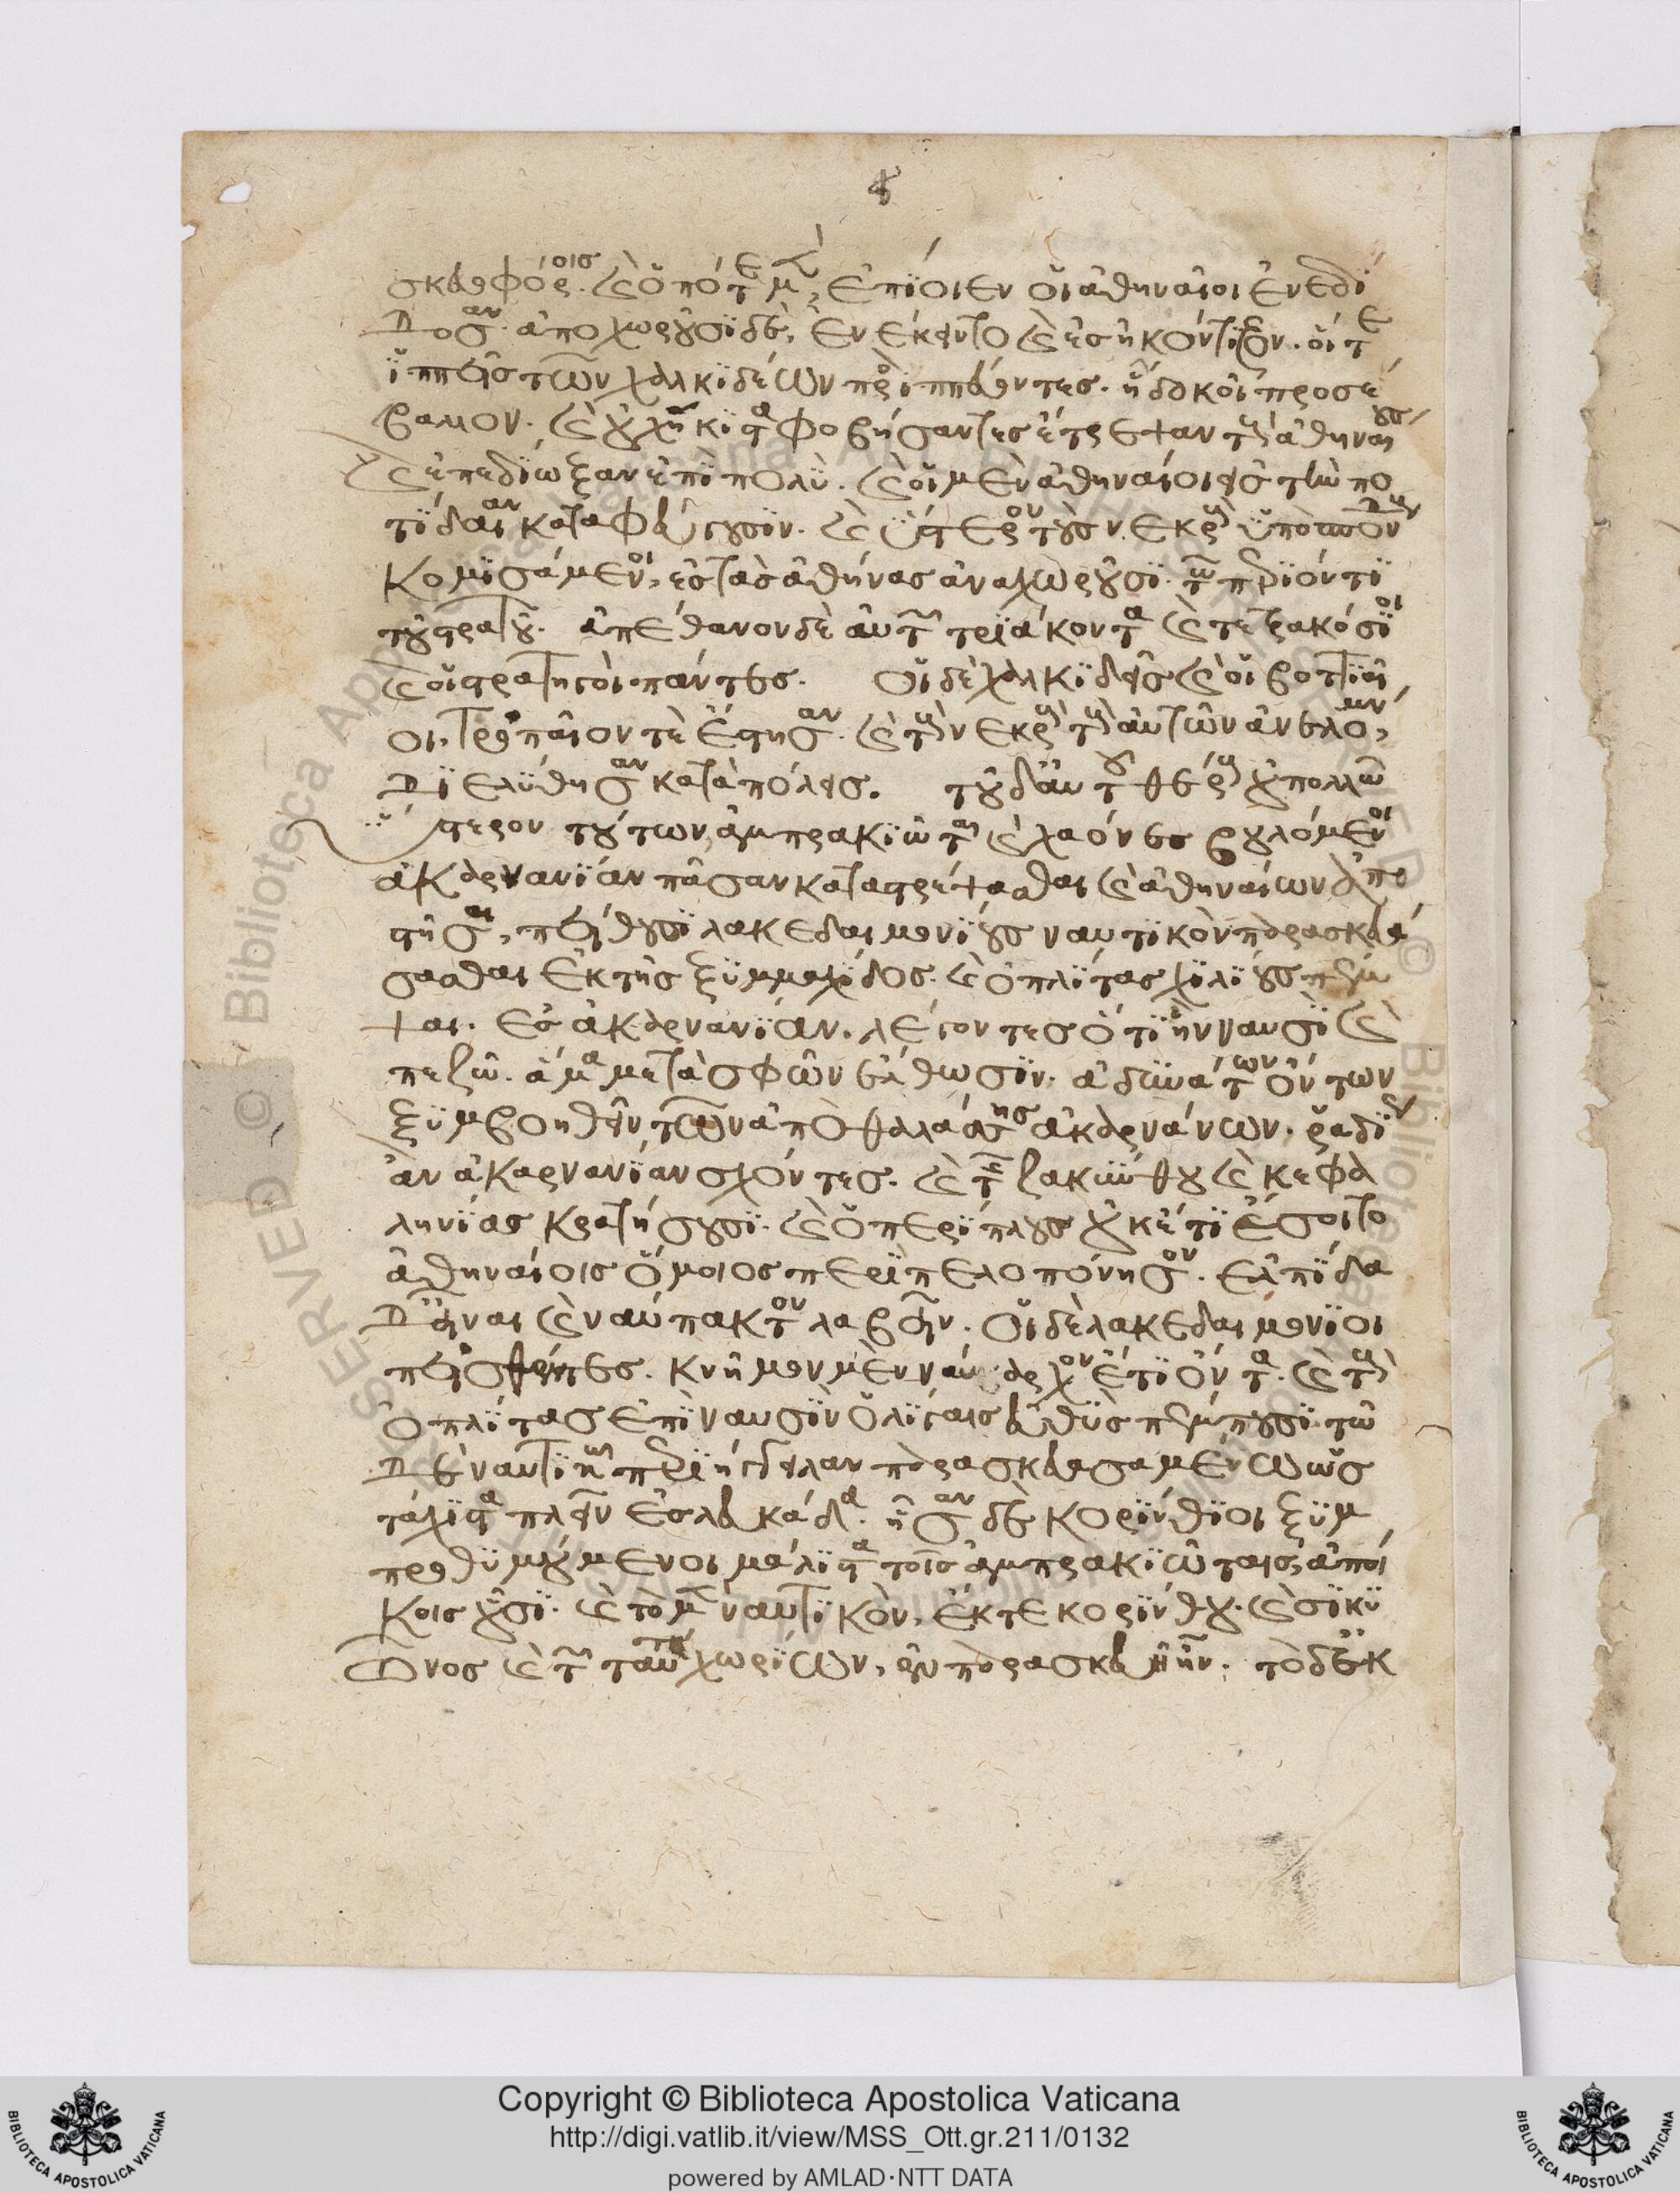 σκευοφόροις. καὶ ὁπότε μὲν ἐπίοιεν οἱ ἀθηναῖοι ἐνεδί
δοσαν. ἀποχωροῦσι δὲ, ἐνέκειντο καὶ ἐσηκόντιζον. οἵ τε
ἱππεῖς τῶν χαλκιδέων προσιππεύοντες. ᾗ δοκοῖ προσέ
βαλλον. καὶ οὐχ ἥκιστα φοβήσαντες ἔτρεψαν τοὺς ἀθηναίους
καὶ ἐπεδίωξαν ἐπὶ πολύ. καὶ οἱ μὲν ἀθηναῖοι ἐς τὴν πο
τίδαιαν καταφεύγουσιν. καὶ ὕστερον τοὺς νεκροὺς ὑποσπόνδους
κομισάμενοι, ἐς τὰς ἀθήνας ἀναχωροῦσι τῶ περιόντι
τοῦ στρατοῦ. ἀπέθανον δὲ αὐτῶν τριάκοντα καὶ τετρακόσιοι
καὶ οἱ στρατηγοὶ πάντες. οἱ δὲ χαλκιδεῖς καὶ οἱ βοττιαῖ
οι, τροπαῖόν τε ἔστησαν. καὶ τοὺς νεκροὺς τοὺς αὑτῶν ἀνελόμενοι,
διελύθησαν κατὰ πόλεις. τοῦ δ' αὐτοῦ θέρους οὐ πολλῶ
ὕστερον τούτων, ἀμπρακιῶται καὶ χάονες βουλόμενοι
ἀκαρνανίαν πᾶσαν καταστρέψασθαι καὶ ἀθηναίων ἀπο
στῆσαι, πείθουσι λακεδαιμονίους ναυτικὸν παρασκευά
σασθαι ἐκ τῆς ξυμμαχίδος. καὶ ὁπλίτας χιλίους πέμ
ψαι. ἐς ἀκαρνανίαν. λέγοντες ὅτι ἢν ναυσὶ καὶ
πεζῶ. ἅμα μετὰ σφῶν ἔλθωσιν. ἀδυνάτων ὄντων
ξυμβοηθεῖν τῶν ἀπὸ θαλάσσης ἀκαρνάνων. ῥαδίως
ἂν ἀκαρνανίαν σχόντες. καὶ τῆς ζακύνθου καὶ κεφα
ληνίας κρατήσουσι. καὶ ὁ περίπλους οὐκέτι ἔσοιτο
ἀθηναίοις ὅμοιος περὶ πελοπόννησον. ἐλπίδα
δ' εἶναι καὶ ναύπακτον λαβεῖν. οἱ δὲ λακεδαιμόνιοι
πεισθέντες. κνῆμον μὲν ναύαρχον ἔτι ὄντα. καὶ τοὺς
ὁπλίτας ἐπὶ ναυσὶν ὀλίγαις εὐθὺς πέμπουσι. τῶ
δὲ ναυτικῶ περιήγγειλαν παρασκευασαμένω ὡς
τάχιστα πλεῖν ἐς λευκάδα. ἦσαν δὲ κορίνθιοι ξυμ
προθυμούμενοι μάλιστα τοῖς ἀμπρακιώταις, ἀποί
κοις οὖσι. καὶ τὸ μὲν ναυτικὸν, ἔκ τε κορίνθου. καὶ σικυ
ῶνος καὶ τῶν ταύτη χωρίων, ἐν παρασκευῆ ἦν. τὸ δ' ἐκ
Copyright © Biblioteca Apostolica Vaticana
http://digi.vatlib.it/view/MSS_Ott.gr.211/0132
powered by AMLAD·NTT DATA